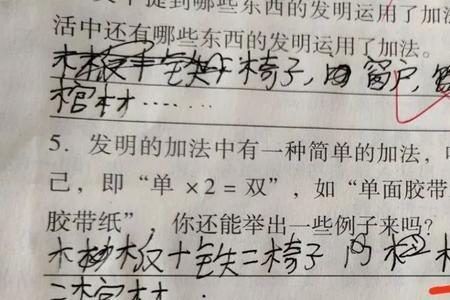 提到哪些东西的发明运用了加法
活中还有哪些东西的发明运用了加法。
木板 铁 椅子, 窗户,
棺材……
5. 发明的加法中有一种简单的加法,
己,即“单 ×2 = 双”,如“单面胶带
胶带纸”,你还能举出一些例子来吗?
木 板+铁=椅子
=棺材.